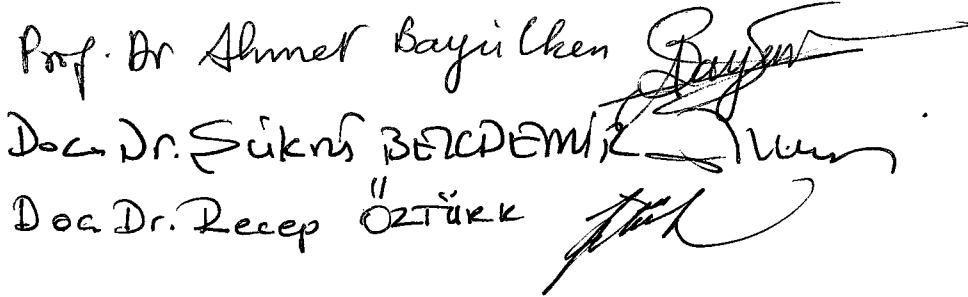 Prof. Dr Ahmet Bayülken
Doç. Dr. Şükrü
Doç. Dr. Recep ÖZTÜRK